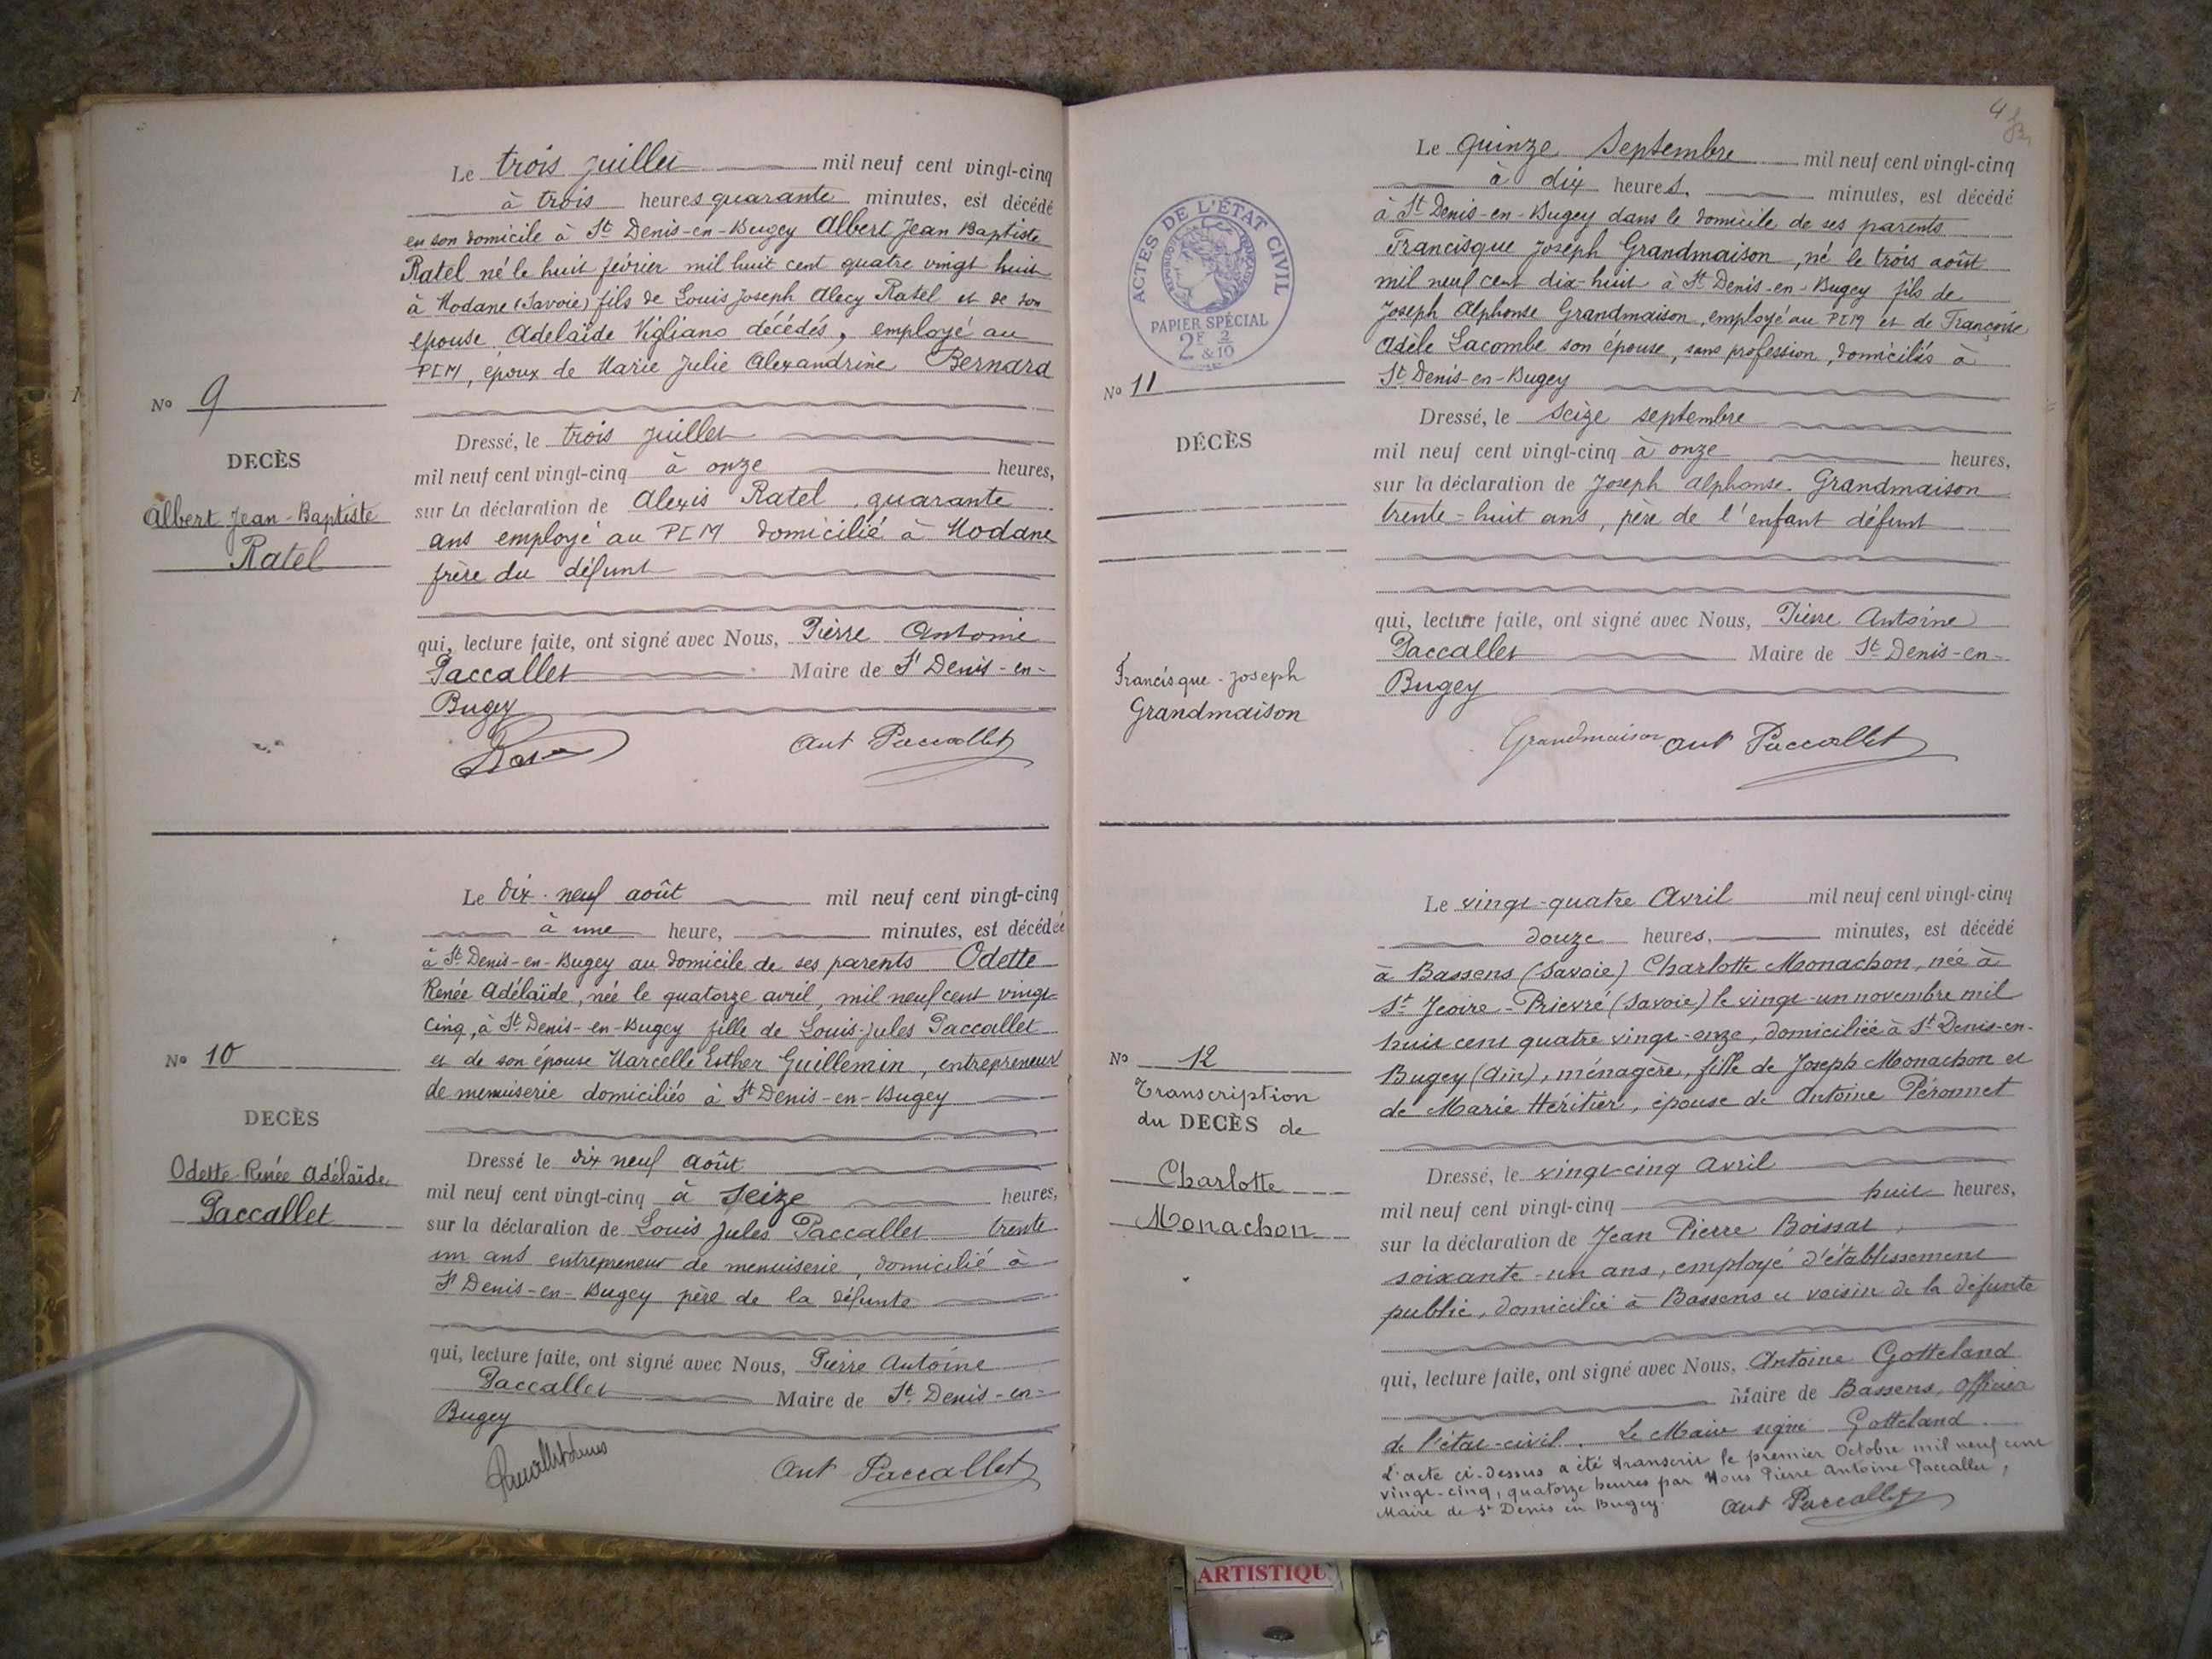 Le trois juillet mil neuf cent vingt-cinq
à trois heures quarante minutes, est décédé
en son domicile à St Denis-en-Bugey Albert Jean Baptiste
Ratel né le huit février mil huit cent quatre vingt huit
à Modane (Savoie) fils de Louis Joseph Alecy Ratel et de son
épouse Adelaïde Vigliano décédés, employé au
PLM, époux de Marie Julie Alexandrine Bernard
No 9
DECÈS
Albert Jean-Baptiste
Ratel
Dressé, le trois juillet
mil neuf cent vingt-cinq à onze heures,
sur la déclaration de Alexis Ratel, quarante
ans employé au PLM domicilié à Modane
frère du défunt
qui, lecture faite, ont signé avec Nous, Pierre Antoine
Paccallet Maire de St Denis-en-
Bugey
Ant Paccallet
Le dix-neuf août mil neuf cent vingt-cinq
à une heure, minutes, est décédée
à St Denis-en-Bugey au domicile de ses parents Odette
Renée Adélaïde, née le quatorze avril, mil neuf cent vingt
cinq, à St Denis-en-Bugey fille de Louis-Jules Paccallet
et de son épouse Marcelle Esther Guillemin, entrepreneur
de menuiserie domiciliés à St Denis-en-Bugey
No 10
DECÈS
Odette Renée Adélaïde
Paccallet
Dressé le dix neuf août
mil neuf cent vingt-cinq à seize heures,
sur la déclaration de Louis Jules Paccallet trente
un ans entrepreneur de menuiserie, domicilié à
St Denis-en-Bugey père de la défunte
qui, lecture faite, ont signé avec Nous, Pierre Antoine
Paccallet Maire de St Denis-en-
Bugey
Ant Paccallet
4
Le quinze Septembre mil neuf cent vingt-cinq
à dix heures. minutes, est décédé
à St Denis-en-Bugey dans le domicile de ses parents
Francisque Joseph Grandmaison, né le trois août
mil neuf cent dix-huit à St Denis-en-Bugey fils de
Joseph Alphonse Grandmaison, employé au PLM et de Françoise
Adèle Lacombe son épouse, sans profession, domiciliés à
St Denis-en-Bugey
ACTES DE L'ÉTAT CIVIL
RÉPUBLIQUE FRANÇAISE
PAPIER SPÉCIAL
2F & 2/10
No 11
DÉCÈS
Francisque-Joseph
Grandmaison
Dressé, le seize septembre
mil neuf cent vingt-cinq à onze heures,
sur la déclaration de Joseph Alphonse Grandmaison
trente-huit ans, père de l'enfant défunt
qui, lecture faite, ont signé avec Nous, Pierre Antoine
Paccallet Maire de St Denis-en-
Bugey
Grandmaison Ant Paccallet
Le vingt-quatre Avril mil neuf cent vingt-cinq
douze heures, minutes, est décédé
à Bassens (Savoie) Charlotte Monachon, née à
St Jeoire-Prieuré (Savoie) le vingt-un novembre mil
huit cent quatre vingt-onze, domiciliée à St Denis-en-
Bugey (Ain), ménagère, fille de Joseph Monachon et
de Marie Héritier, épouse de Antoine Péronnet
No 12
Transcription
du DECÈS de
Charlotte
Monachon
Dressé, le vingt-cinq Avril
mil neuf cent vingt-cinq huit heures,
sur la déclaration de Jean Pierre Boissat,
soixante-un ans, employé d'établissement
public, domicilié à Bassens et voisin de la défunte
qui, lecture faite, ont signé avec Nous, Antoine Gotteland
Maire de Bassens, Officier
de l'état-civil. Le Maire signé Gotteland
L'acte ci-dessus a été transcrit le premier Octobre mil neuf cent
vingt-cinq, quatorze heures par Nous Pierre Antoine Paccallet,
Maire de St Denis en Bugey. Ant Paccallet
ARTISTIQU